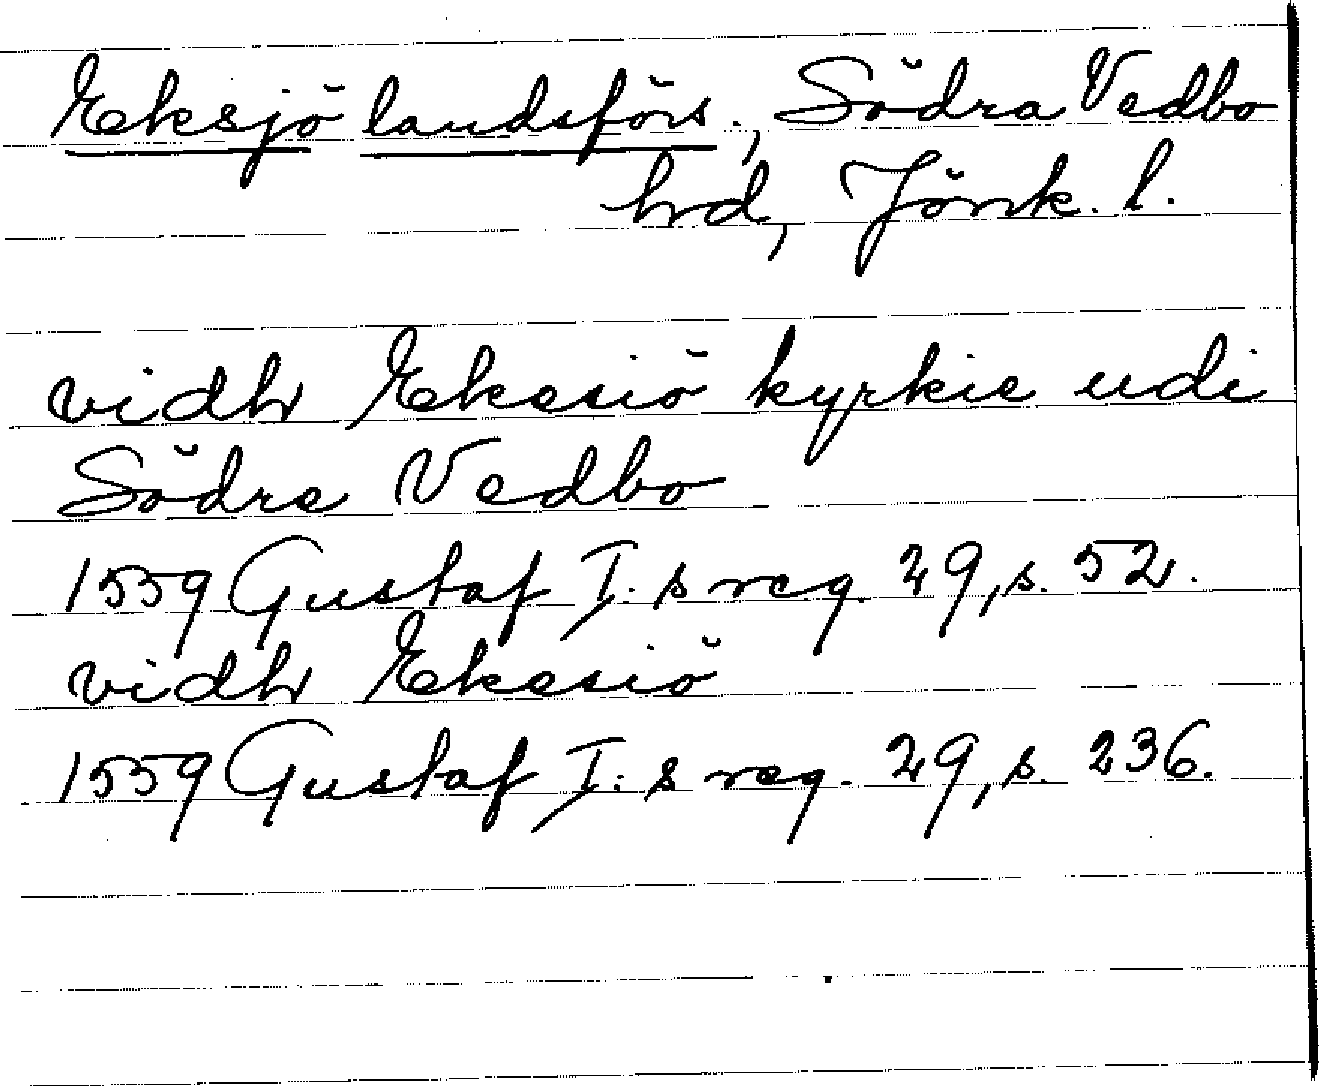 Eksjö landsförs., Södra Vedbo
hrd, Jönk. l.
vidh Ekesiö kyrkie udi
Södre Vedbo
1559 Gustaf I:s reg. 29, s. 52.
vidh Ekesiö
1559 Gustaf I:s reg. 29, s. 236.